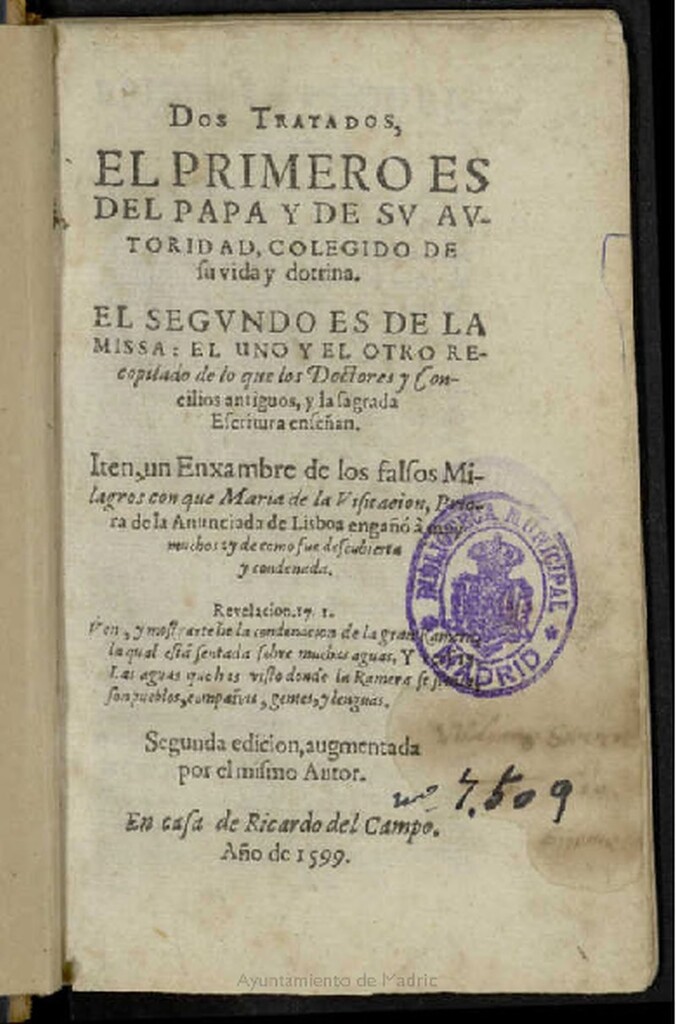 DOS TRATADOS,
EL PRIMERO ES
DEL PAPA Y DE SV AV-
TORIDAD, COLEGIDO DE
ſu vida y dotrina.
EL SEGVNDO ES DE LA
MISSA: EL UNO Y EL OTRO RE-
copilado de lo que los Doctores y Con-
cilios antiguos, y la ſagrada
Eſcritura enſeñan.
Iten, un Enxambre de los falſos Mi-
lagros con que Maria de la Viſitacion, Prio-
ra de la Anunciada de Lisboa engañó à
muchos: y de como fue deſcubierta
y condenada.
Revelacion. 17. 1.
Ven, y moſtrarte he la condenacion de la gran Ramera
la qual eſtá ſentada ſobre muchas aguas, Y
Las aguas que has viſto donde la Ramera ſe
ſon pueblos, compañias, gentes, y lenguas.
Segunda edicion, augmentada
por el miſmo Autor.
En caſa de Ricardo del Campo.
Año de 1599.
BIBLIOTECA MUNICIPAL
MADRID
7.509
Ayuntamiento de Madrid